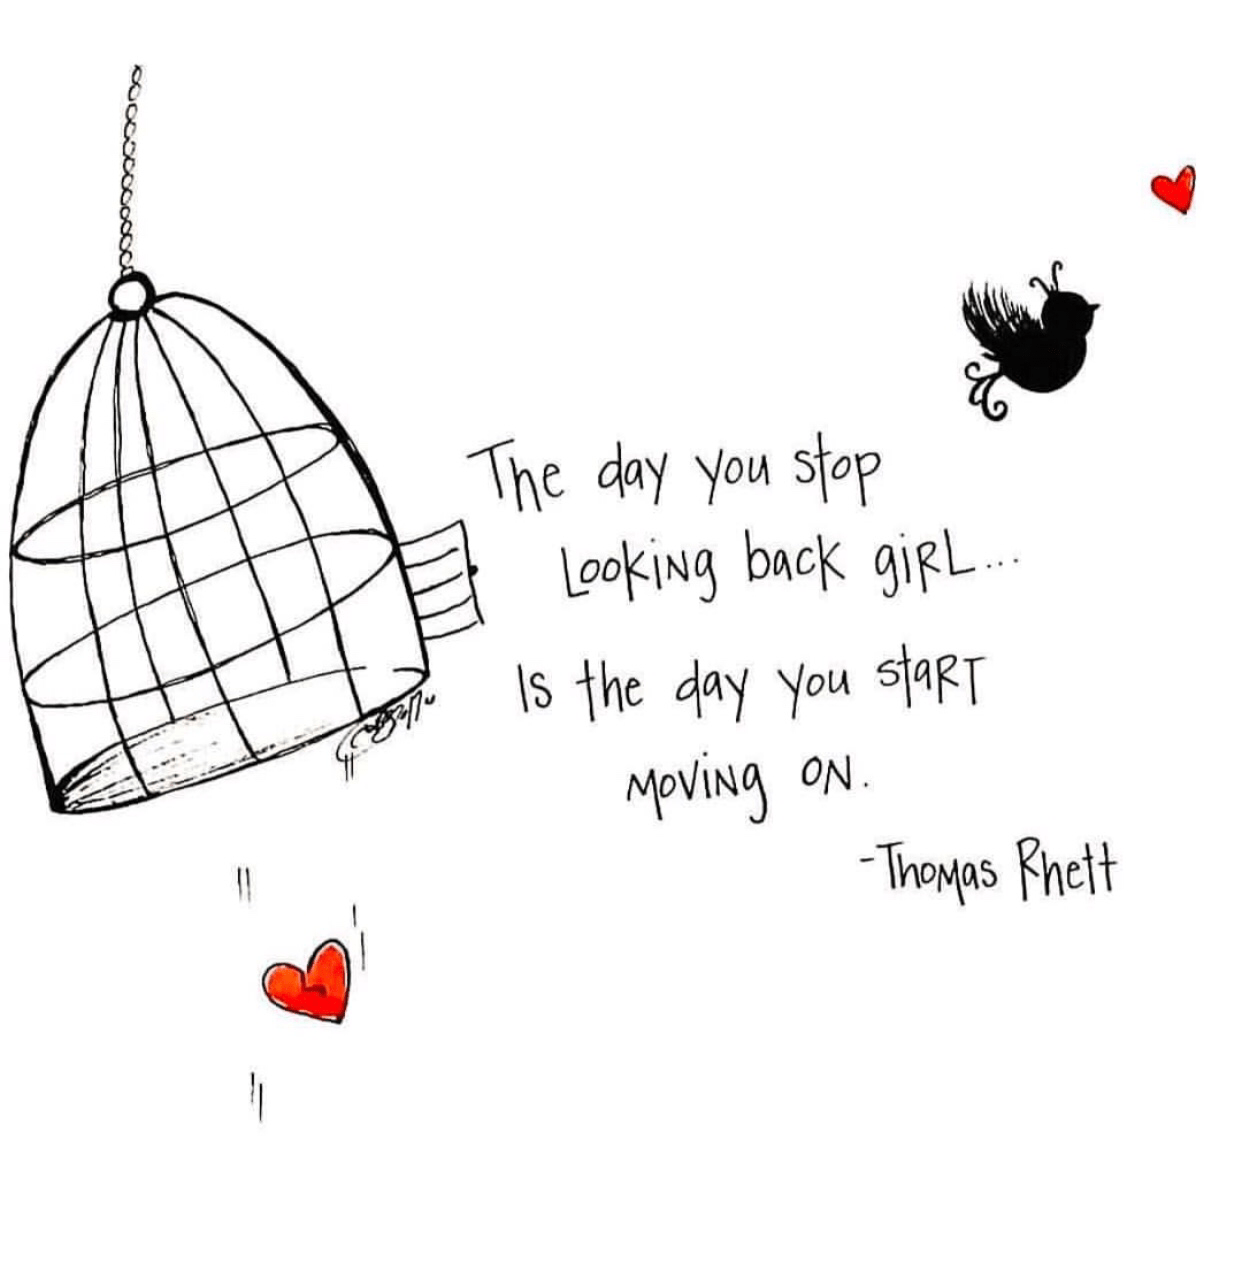 The day you stop
Looking back girl...
Is the day you start
moving on.
-Thomas Rhett